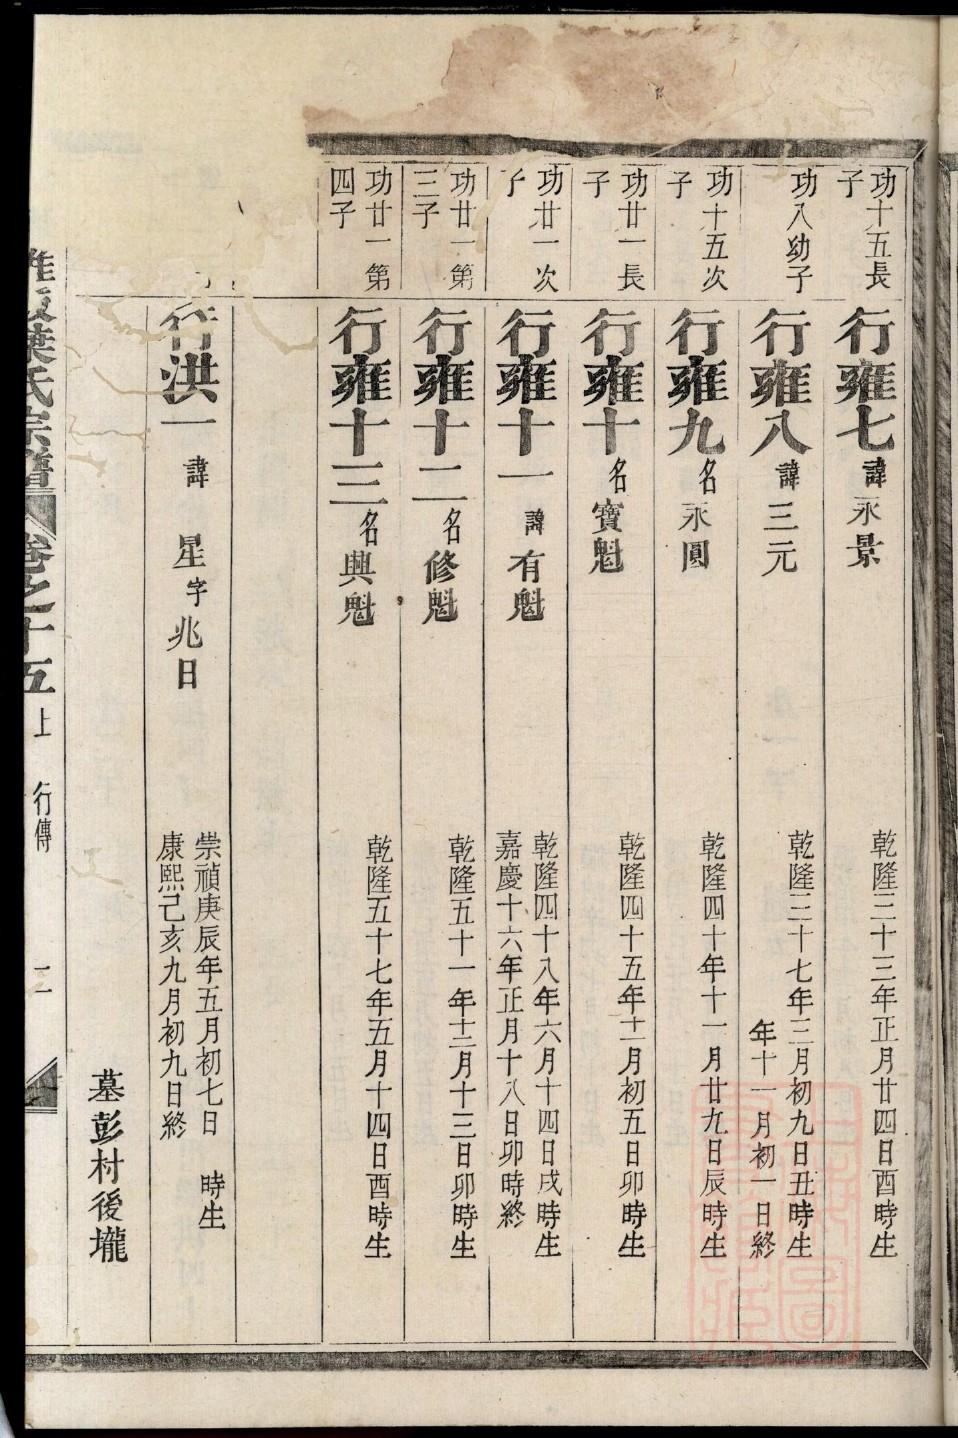 功十五長
子
行雍七 諱永景
乾隆三十三年正月廿四日酉時生
功八幼子
行雍八 諱三元
乾隆三十七年三月初九日丑時生
年十一月初一日終
功十五次
子
行雍九 名永圓
乾隆四十年十一月廿九日辰時生
功廿一長
子
行雍十 名寶魁
乾隆四十五年十一月初五日卯時生
功廿一次
子
行雍十一 諱有魁
乾隆四十八年六月十四日戌時生
嘉慶十六年正月十八日卯時終
功廿一第
三子
行雍十二 名修魁
乾隆五十一年十二月十三日卯時生
功廿一第
四子
行雍十三 名興魁
乾隆五十七年五月十四日酉時生
行洪一 諱星字兆日
崇禎庚辰年五月初七日 時生
康熙己亥九月初九日終
墓彭村後壠
葉氏宗譜 卷之十五上 行傳 二